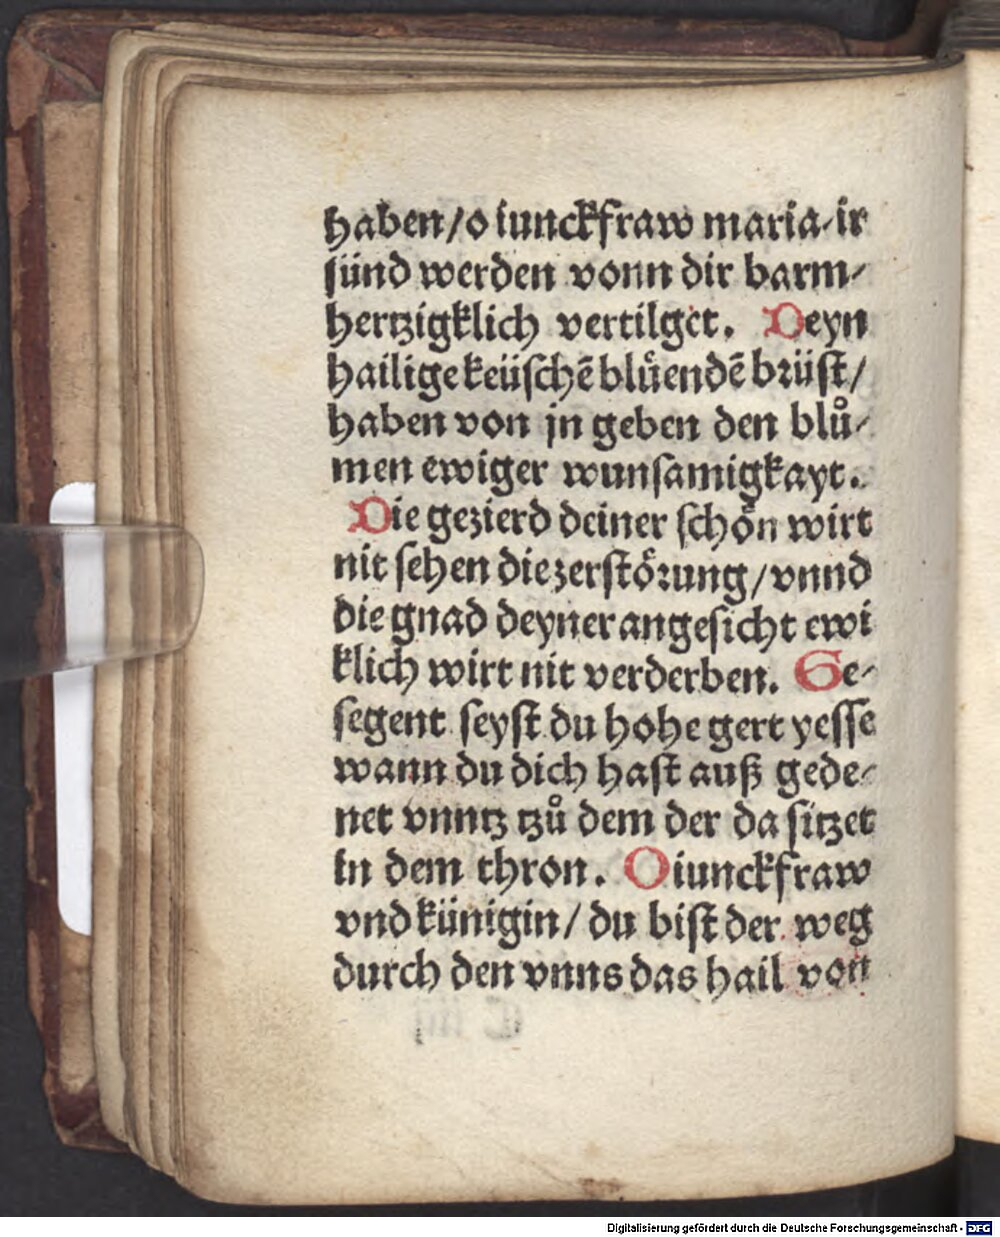 haben/o iunckfraw maria/ir
sünd werden vonn dir barm⸗
hertzigklich vertilget. Deyn
hailige keüschē blůendē brüst/
haben von jn geben den blů⸗
men ewiger wunsamigkayt.
Die gezierd deiner schön wirt
nit sehen die zerstörung/vnnd
die gnad deyner angesicht ewi
klich wirt nit verderben. Ge⸗
segent seyst du hohe gert yesse
wann du dich hast auß gede⸗
net vnntz tzů dem der da sitzet
in dem thron. O iunckfraw
vnd künigin/du bist der weg
durch den vnns das hail von
Digitalisierung gefördert durch die Deutsche Forschungsgemeinschaft - DFG